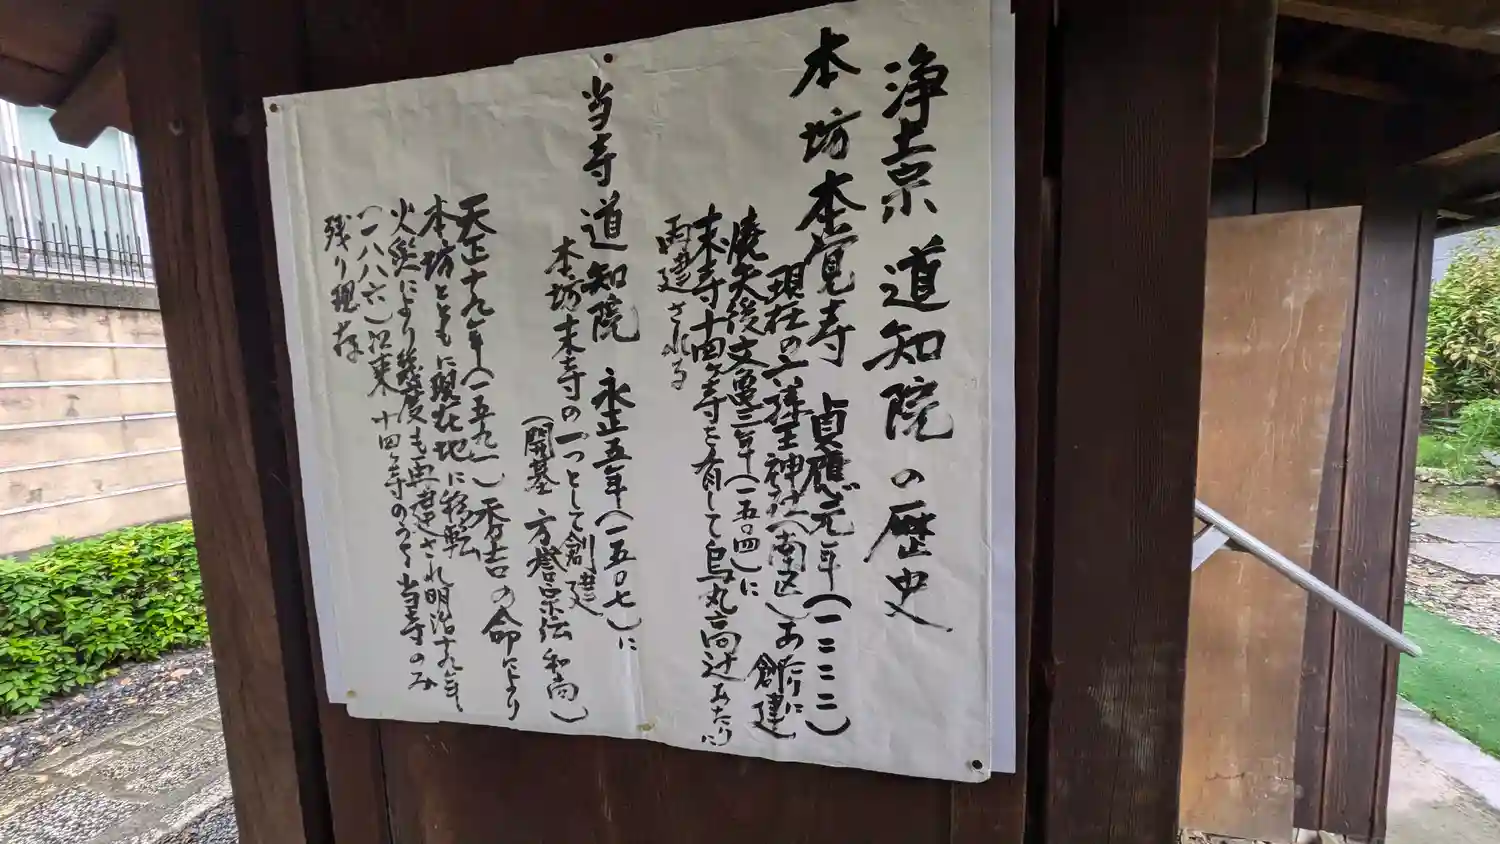 浄土宗 道知院の歴史
本坊本覚寺 貞應元年(一二二二)
現在の六孫王神社(南区)あたりに創建
廃失後文亀三年(一五〇四)に
末寺十四ヶ寺を有して烏丸高辻あたりに
再建される
当寺道知院 永正五年(一五〇七)に
本坊末寺の一つとして創建
(開基 方誉宗法和尚)
天正十九年(一五九一)秀吉の命により
本坊とともに現在地に移転
火災により幾度も再建され明治十九年
(一八八六)江東十四ヶ寺のうち当寺のみ
残り現存